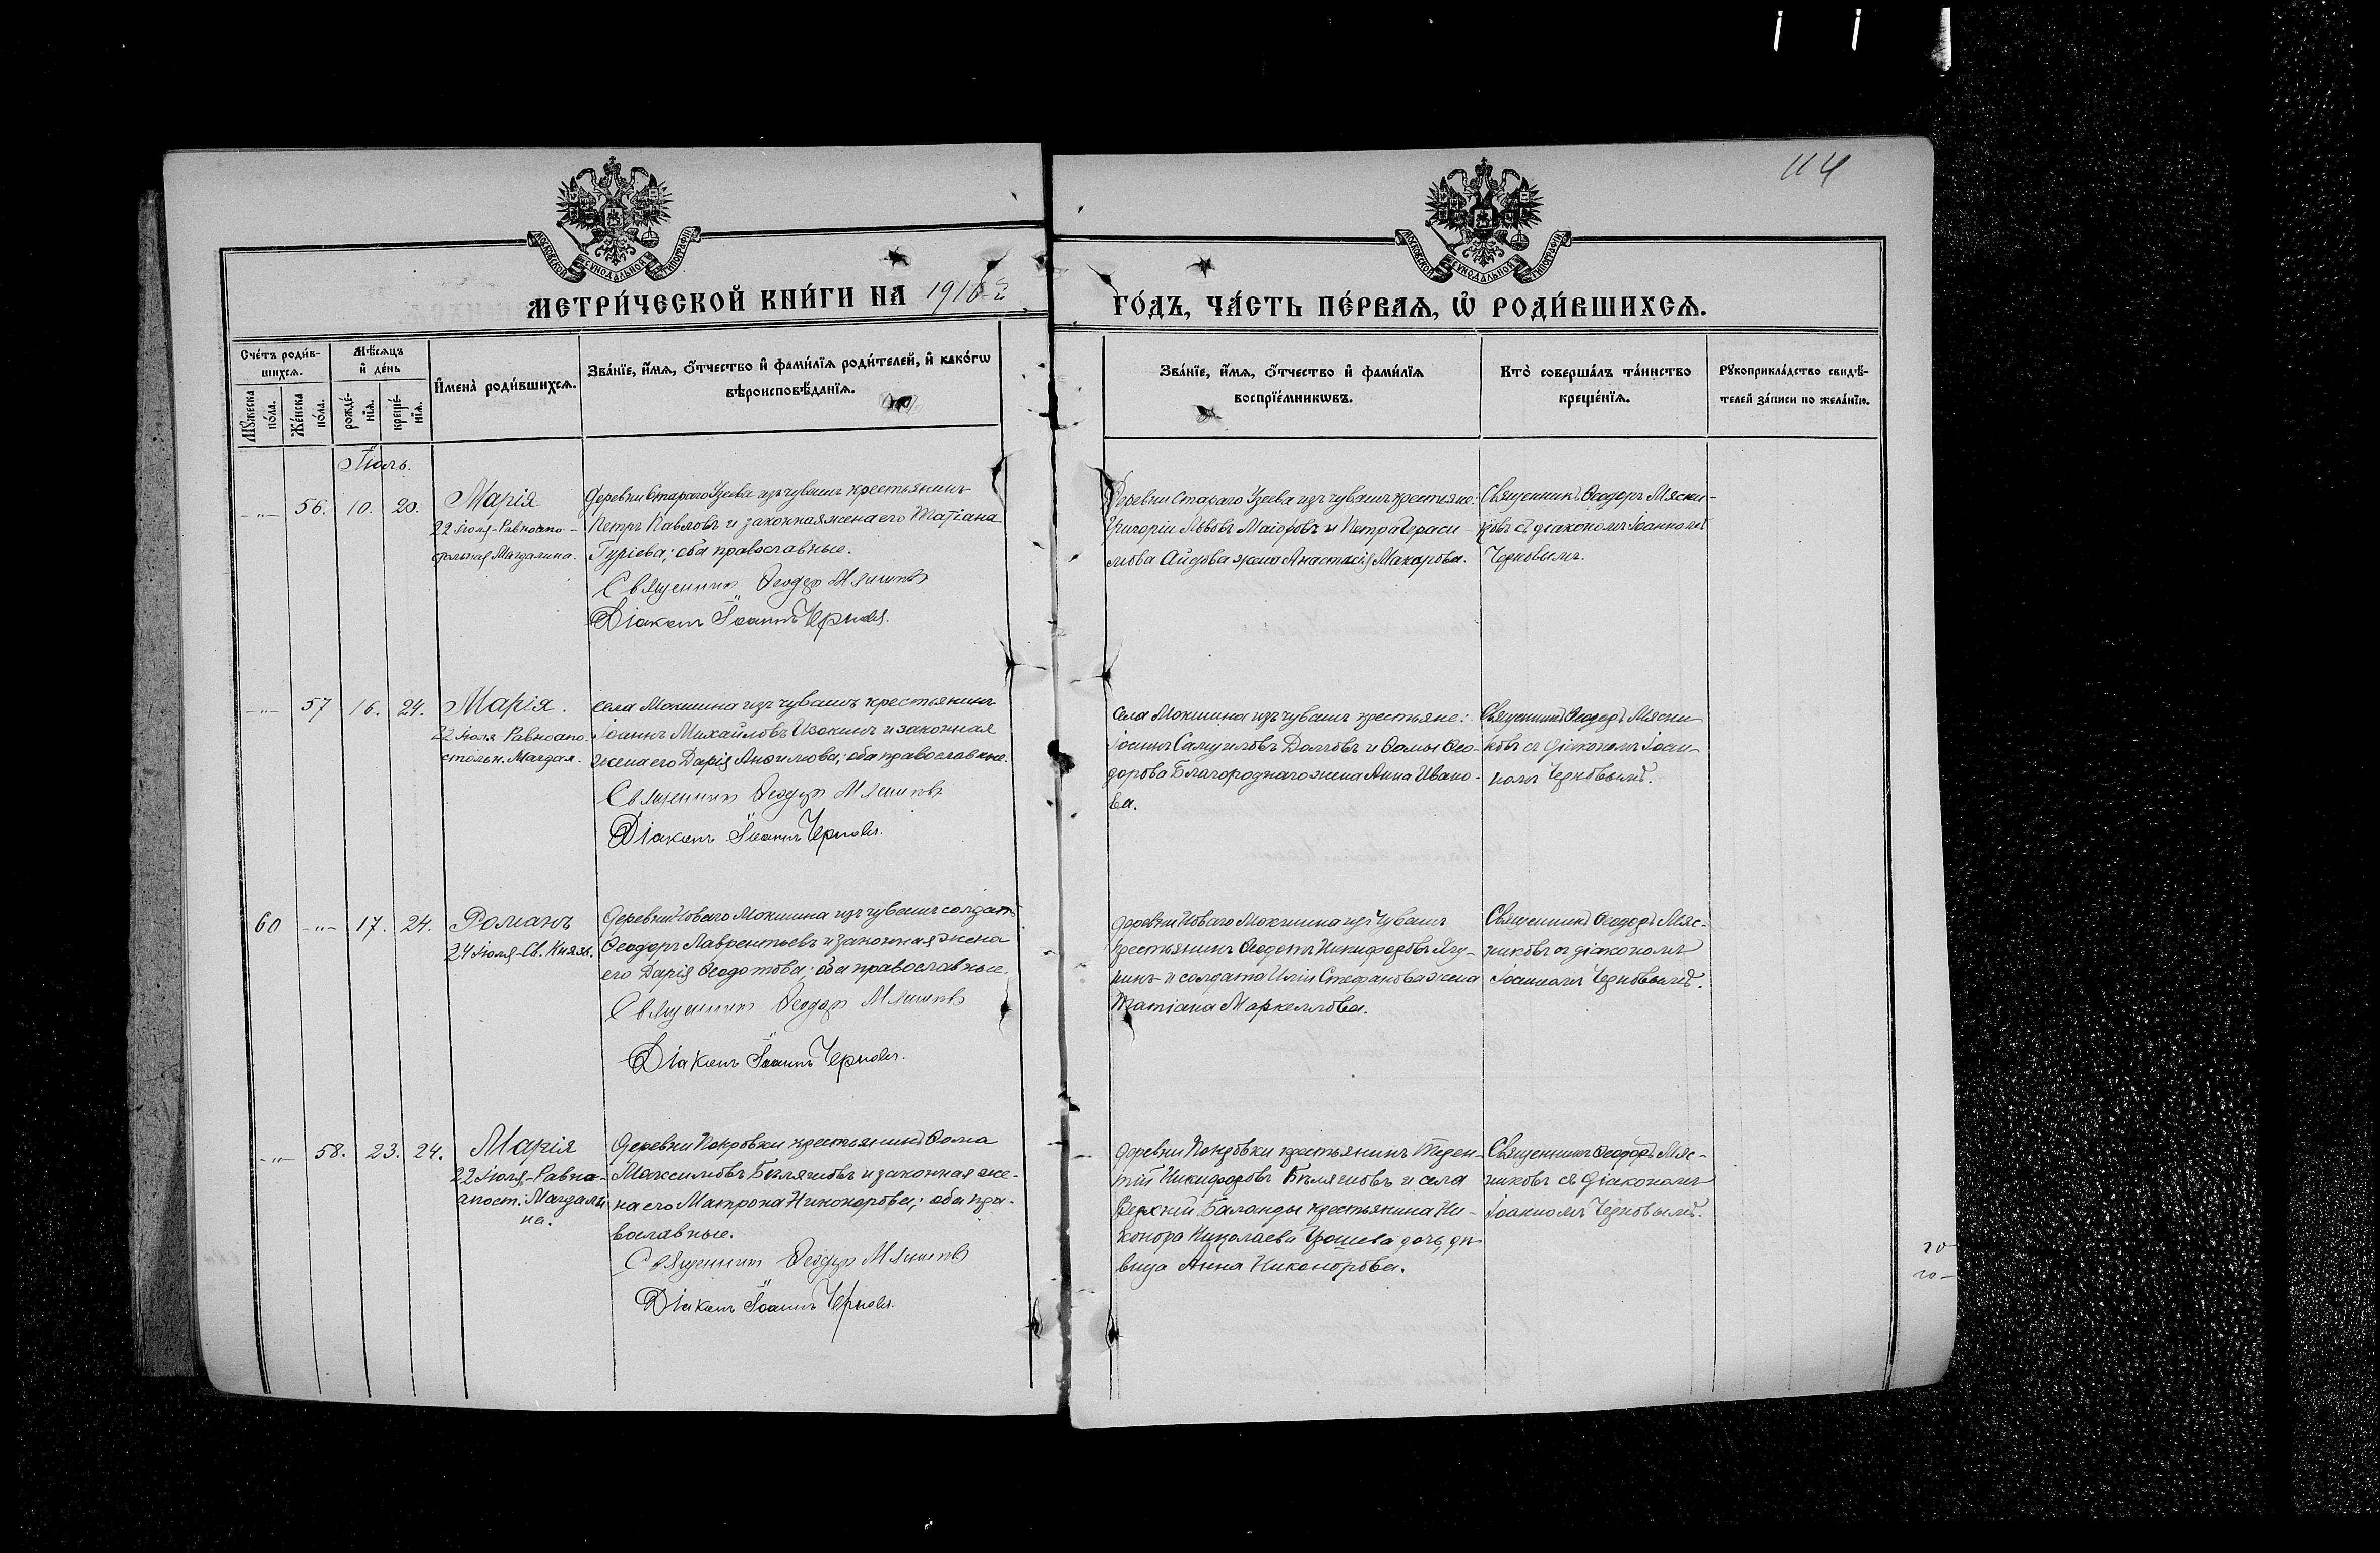 114
МОСКОВСКОЙ СУНОДАЛЬНОЙ ТИПОГРАФІИ
МОСКОВСКОЙ СУНОДАЛЬНОЙ ТИПОГРАФІИ
МЕТРИ́ЧЕСКОЙ КНИ́ГИ НА 1916-й
ГО́ДЪ, ЧА́СТЬ ПЕ́РВАѦ, Ѡ҆ РОДИ́ВШИХСѦ.
Сче́тъ роди́в-
шихсѧ.
Мѣ́сѧцъ
и҆ де́нь
Мꙋ́жеска
по́ла.
Же́нска
по́ла.
рожде́-
нїѧ.
креще́-
нїѧ.
И҆мена̀ роди́вшихсѧ.
Зва́нїе, и҆́мѧ, ѻ҆́тчество и҆ фами́лїѧ роди́телей, и҆ како́гѡ
вѣроисповѣ́данїѧ.
Зва́нїе, и҆́мѧ, ѻ҆́тчество и҆ фами́лїѧ
воспрїе́мникѡвъ.
Кто̀ соверша́лъ та́инство
креще́нїѧ.
Рꙋкоприкла́дство свидѣ́-
телей за́писи по жела́нїю.
Іюль.
-"- 56. 10. 20.
Марія
22 іюля-Равноапо-
стольная Магдалина.
Деревни Стараго Узеева изъ чувашъ крестьянинъ
Петръ Павловъ и законная жена его Татіана
Гуріева; оба православные.
Священникъ Ѳеодоръ Мясниковъ
Діаконъ Іоаннъ Черновъ.
Деревни Стараго Узеева изъ чувашъ крестьяне:
Григорій Львовъ Маіоровъ и Петра Гераси-
мова Айдова жена Анастасія Макарова.
Священникъ Ѳеодоръ Мясни-
ковъ съ діакономъ Іоанномъ
Черновымъ.
-"- 57 16. 24.
Марія.
22 іюля Равноапо-
стольн. Магдал.
Села Мокшина изъ чувашъ крестьянинъ
Іоаннъ Михайловъ и законная
жена его Дарія; оба православные.
Священникъ Ѳеодоръ Мясниковъ
Діаконъ Іоаннъ Черновъ.
Села Мокшина изъ чувашъ крестьяне:
Іоаннъ Самуиловъ Долговъ и Ѳомы Ѳео-
дорова Благороднаго жена Анна Ивано-
ва.
Священникъ Ѳеодоръ Мясни-
ковъ съ діакономъ Іоан-
номъ Черновымъ.
60 -"- 17. 24.
Романъ
24 іюля-Св. Князь.
Деревни Новаго Мокшина изъ чувашъ солдатъ
Ѳеодоръ Лаврентьевъ и законная жена
его Дарія Ѳеодотова; оба православные.
Священникъ Ѳеодоръ Мясниковъ
Діаконъ Іоаннъ Черновъ.
Деревни Новаго Мокшина изъ чувашъ
крестьянинъ Ѳеодотъ Никифоровъ Ягу-
нинъ и солдата Иліи Стефанова жена
Татіана Маркеллова.
Священникъ Ѳеодоръ Мяс-
никовъ съ діакономъ
Іоанномъ Черновымъ.
-"- 58. 23. 24.
Марія
22 іюля-Равно-
апост. Магдали
на.
Деревни Покровки крестьянинъ Ѳома
Максимовъ Беляковъ и законная же-
на его Матрона Никонорова; оба пра-
вославные.
Священникъ Ѳеодоръ Мясниковъ
Діаконъ Іоаннъ Черновъ.
Деревни Покровки крестьянинъ Терен-
тій Никифоровъ Беляковъ и села
Верхній Баланды крестьянина Ни-
конора Николаева дочь, дѣ-
вица Анна Никонорова.
Священникъ Ѳеодоръ Мяс-
никовъ съ діакономъ
Іоанномъ Черновымъ.